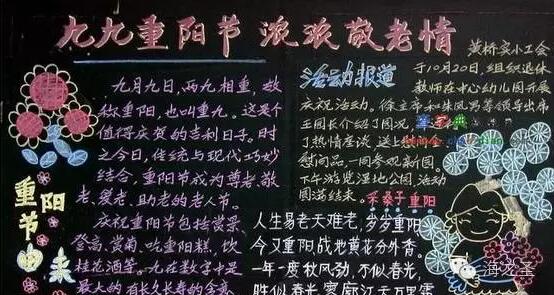 九九重阳节 浓浓敬老情
黄桥实小工会
重阳节由来
九月九日，两九相重，故
称重阳，也叫重九。这是个
值得庆贺的吉利日子。时
至今日，传统与现代巧妙
结合，重阳节成为尊老、敬
老、爱老、助老的老人节。
庆祝重阳节包括赏景、
登高、赏菊、吃重阳糕、饮
桂花酒等。九在数字中是
最大的，有长久长寿的含意
活动报道
于10月20日，组织退休
教师在中心幼儿园开展
庆祝活动。徐主席和朱凤男等领导出席
王园长介绍了园况
了热情座谈 送上
慰问品，一同参观新园。
下午游览湿地公园 活动
圆满结束。
采桑子重阳
人生易老天难老，岁岁重阳
今又重阳战地黄花分外香。
一年一度秋风劲，不似春光，
胜似春光，寥廓江天万里霜
海龙圣